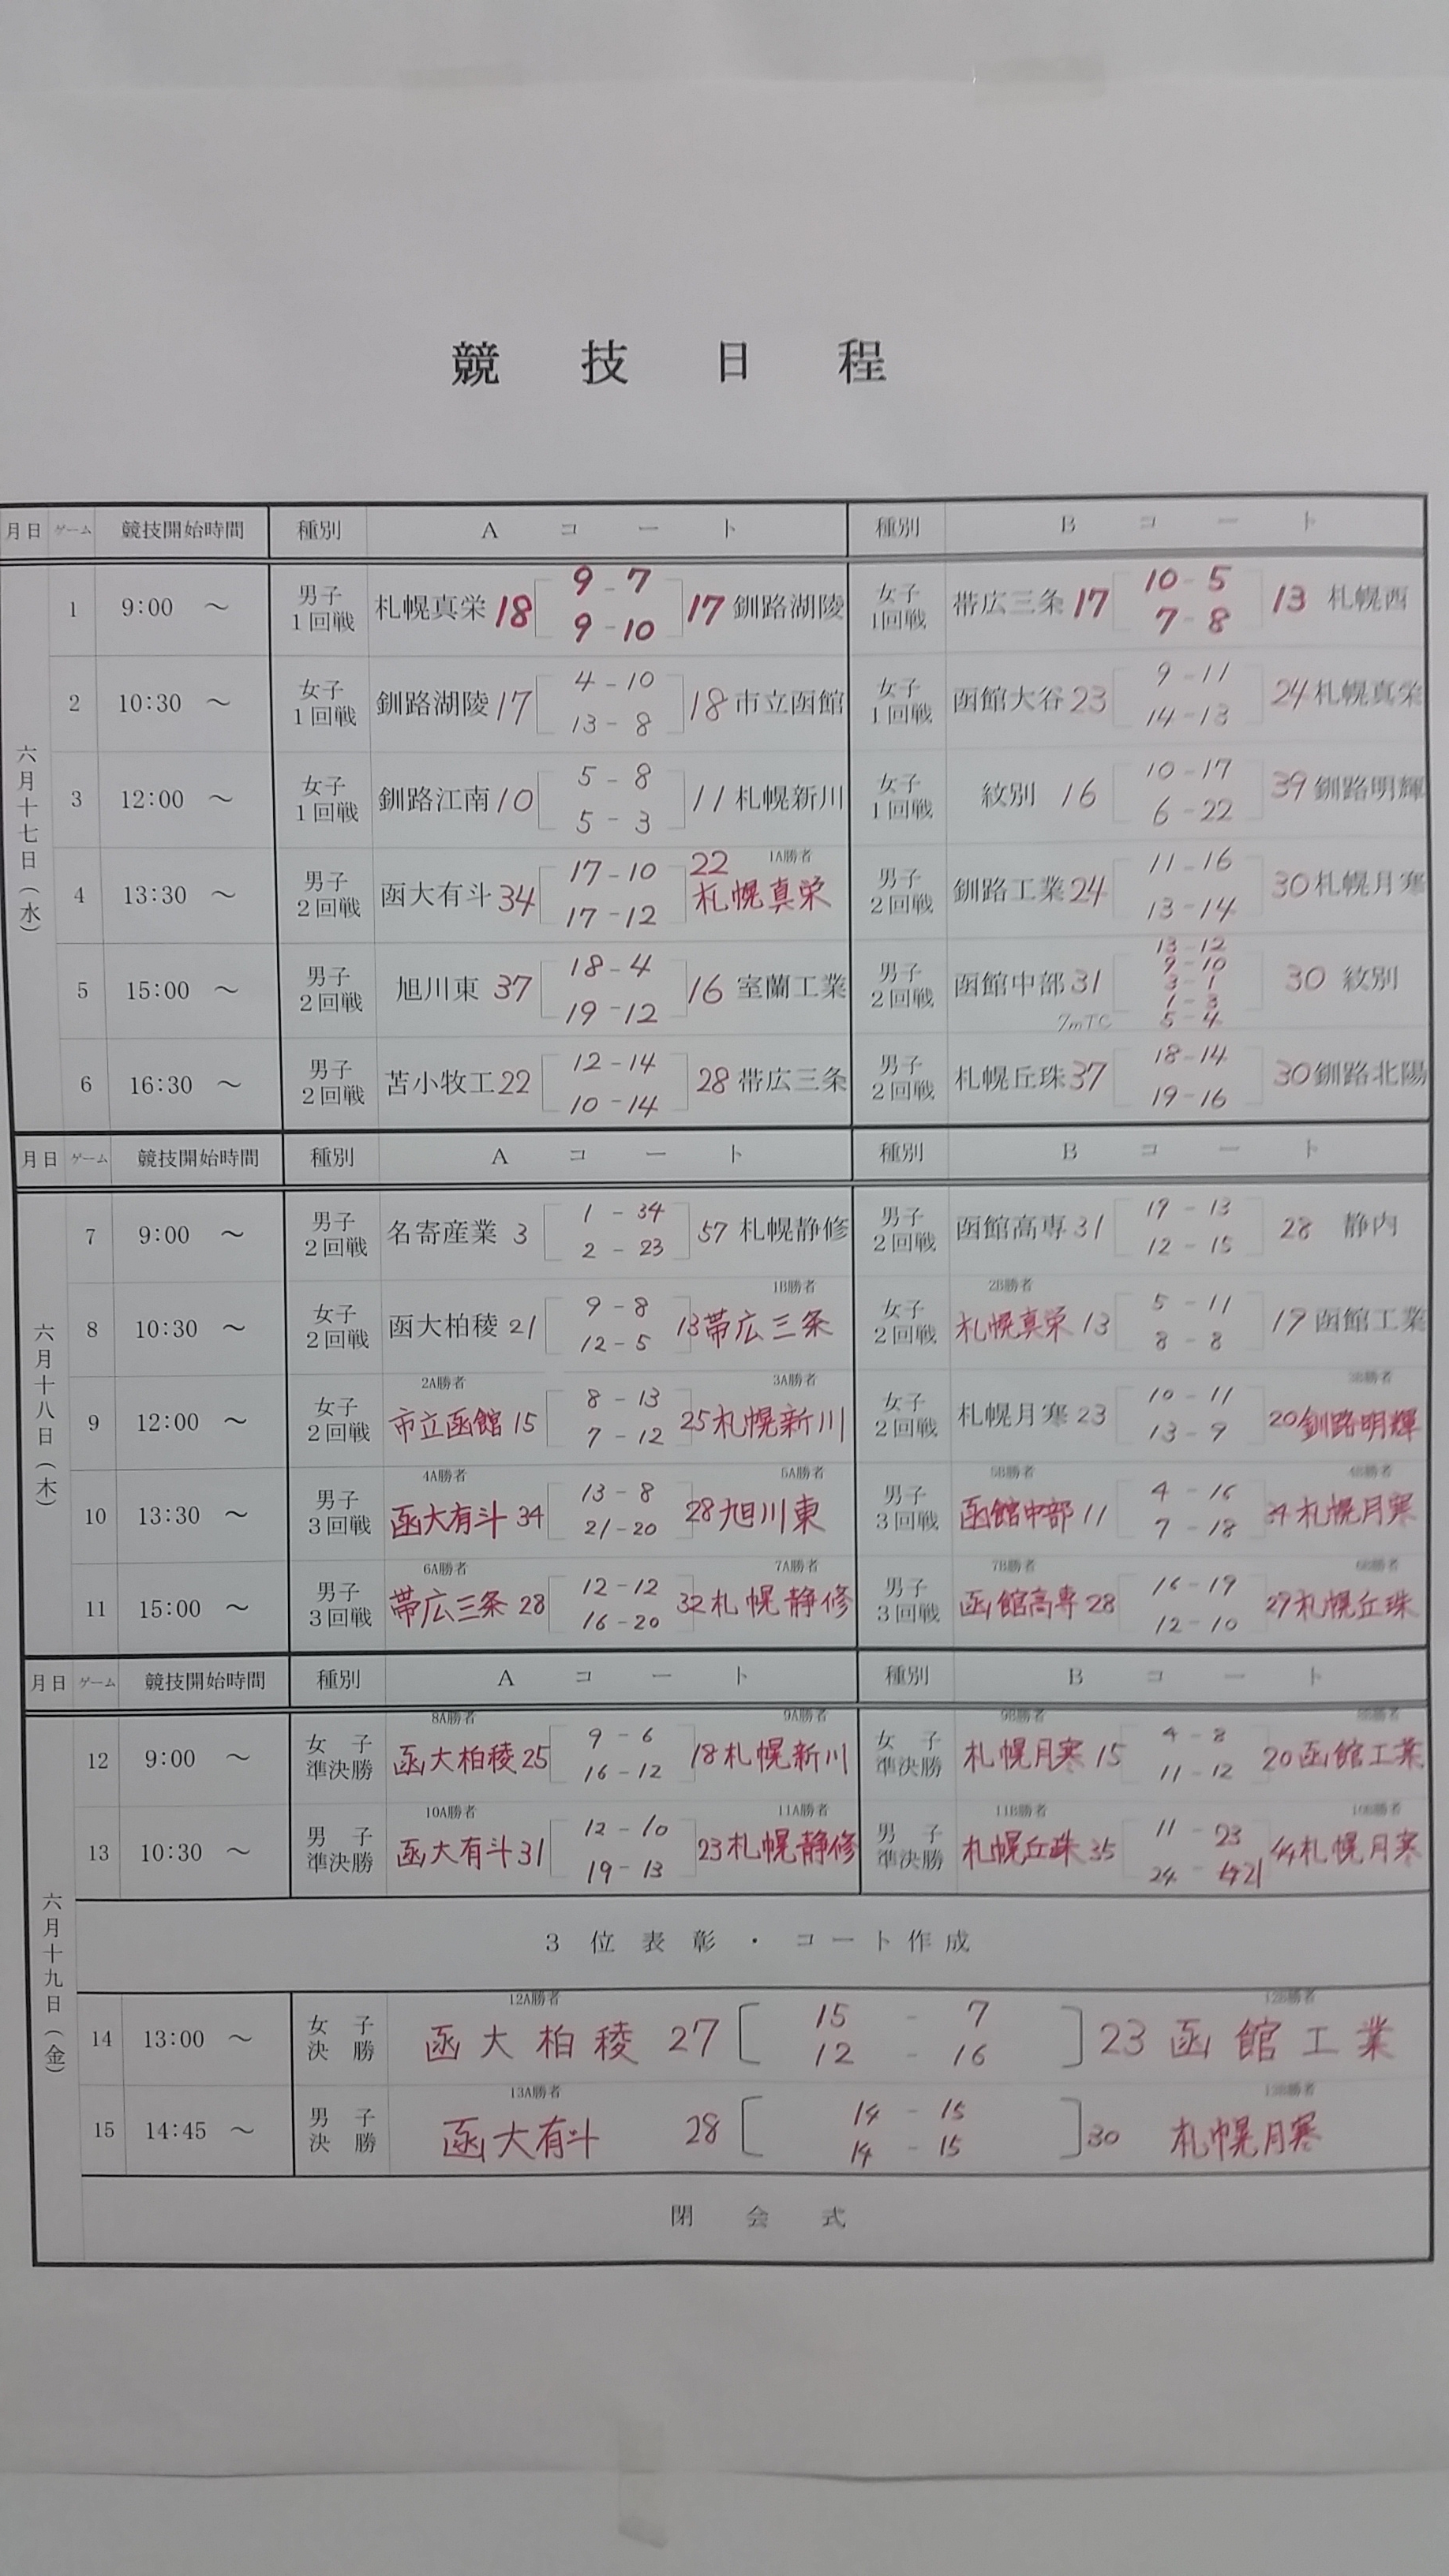 競技日程
月日 ゲーム 競技開始時間 種別 Aコート 種別 Bコート
六月十七日(水)
1 9:00 ～ 男子1回戦 札幌真栄 18 9-7 9-10 17 釧路湖陵 女子1回戦 帯広三条 17 10-5 7-8 13 札幌西
2 10:30 ～ 女子1回戦 釧路湖陵 17 4-10 13-8 18 市立函館 女子1回戦 函館大谷 23 9-11 14-13 24 札幌真栄
3 12:00 ～ 女子1回戦 釧路江南 10 5-8 5-3 11 札幌新川 女子1回戦 紋別 16 10-17 6-22 39 釧路明輝
4 13:30 ～ 男子2回戦 函大有斗 34 17-10 17-12 22 1A勝者 札幌真栄 男子2回戦 釧路工業 24 11-16 13-14 30 札幌月寒
5 15:00 ～ 男子2回戦 旭川東 37 18-4 19-12 16 室蘭工業 男子2回戦 函館中部 31 13-12 9-10 3-1 1-3 7mTC 5-4 30 紋別
6 16:30 ～ 男子2回戦 苫小牧工 22 12-14 10-14 28 帯広三条 男子2回戦 札幌丘珠 37 18-14 19-16 30 釧路北陽
月日 ゲーム 競技開始時間 種別 Aコート 種別 Bコート
六月十八日(木)
7 9:00 ～ 男子2回戦 名寄産業 3 1-34 2-23 57 札幌静修 男子2回戦 函館高専 31 19-13 12-15 28 静内
8 10:30 ～ 女子2回戦 函大柏稜 21 9-8 12-5 13 1B勝者 帯広三条 女子2回戦 2B勝者 札幌真栄 13 5-11 8-8 19 函館工業
9 12:00 ～ 女子2回戦 2A勝者 市立函館 15 8-13 7-12 25 3A勝者 札幌新川 女子2回戦 札幌月寒 23 10-11 13-9 20 3B勝者 釧路明輝
10 13:30 ～ 男子3回戦 4A勝者 函大有斗 34 13-8 21-20 28 5A勝者 旭川東 男子3回戦 5B勝者 函館中部 11 4-16 7-18 34 4B勝者 札幌月寒
11 15:00 ～ 男子3回戦 6A勝者 帯広三条 28 12-12 16-20 32 7A勝者 札幌静修 男子3回戦 7B勝者 函館高専 28 16-19 12-10 29 6B勝者 札幌丘珠
月日 ゲーム 競技開始時間 種別 Aコート 種別 Bコート
六月十九日(金)
12 9:00 ～ 女子準決勝 8A勝者 函大柏稜 25 9-6 16-12 18 9A勝者 札幌新川 女子準決勝 9B勝者 札幌月寒 15 4-8 11-12 20 8B勝者 函館工業
13 10:30 ～ 男子準決勝 10A勝者 函大有斗 31 12-10 19-13 23 11A勝者 札幌静修 男子準決勝 11B勝者 札幌丘珠 35 11-23 24-21 44 10B勝者 札幌月寒
3位表彰・コート作成
14 13:00 ～ 女子決勝 12A勝者 函大柏稜 27 15-7 12-16 23 12B勝者 函館工業
15 14:45 ～ 男子決勝 13A勝者 函大有斗 28 14-15 14-15 30 13B勝者 札幌月寒
閉会式